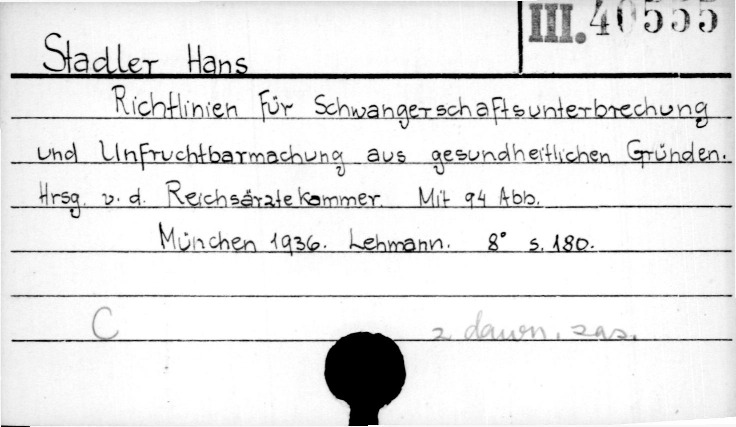 III. 40555
Stadler Hans
Richtlinien für Schwangerschaftsunterbrechung
und Unfruchtbarmachung aus gesundheitlichen Gründen.
Hrsg. v. d. Reichsärztekammer. Mit 94 Abb.
München 1936. Lehmann. 8° s. 180.
C
z dawn. zas.